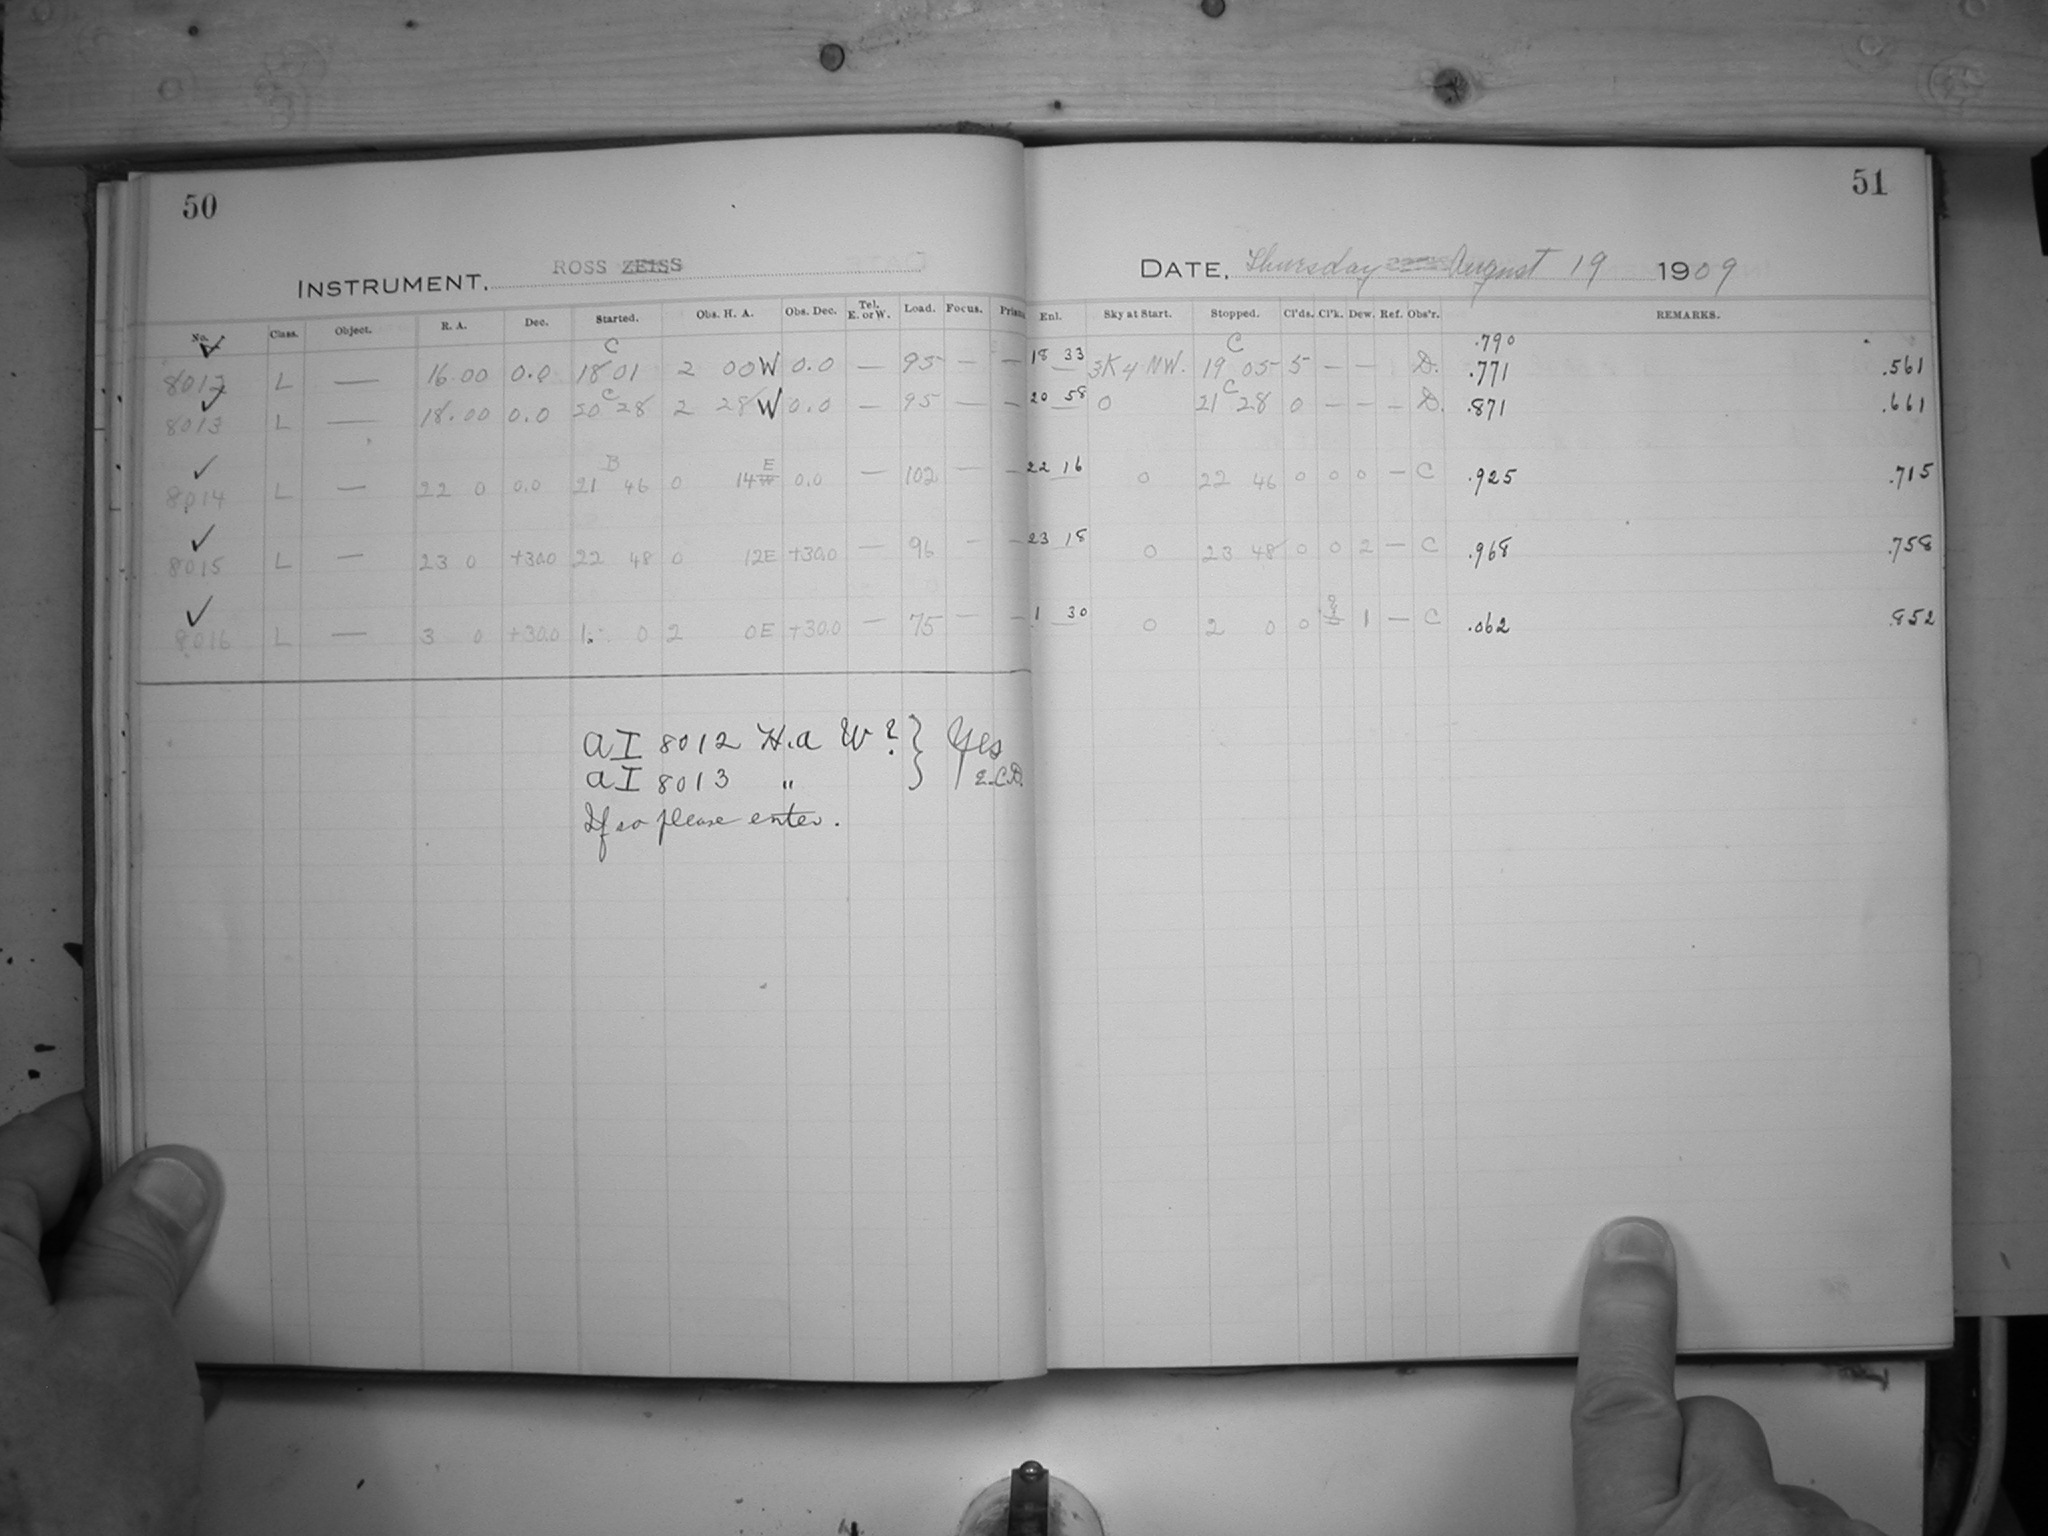 50
INSTRUMENT. ROSS ZEISS
No. Class. Object. R. A. Dec. Started. Obs. H. A. Obs. Dec. Tel. E. or W. Load. Focus. Prism
8012 L — 16.00 0.0 C 18 01 2 00W 0.0 — 95 — —
8013 L — 18.00 0.0 C 20 28 2 28W 0.0 — 95 — —
8014 L — 22 0 0.0 B 21 46 0 14 W E 0.0 — 102 — —
8015 L — 23 0 +30.0 22 48 0 12E +30.0 — 96 — —
8016 L — 3 0 +30.0 1 0 2 0E +30.0 — 75 — —
aI 8012 H.a W? } Yes
aI 8013 " } E.C.D.
If so please enter.
51
DATE, Thursday August 19 1909
Enl. Sky at Start. Stopped. Cl'ds. Cl'k. Dew. Ref. Obs'r. REMARKS.
.790
18 33 3K4 NW. C 19 05 5 — — D. .771 .561
20 58 0 C 21 28 0 — — — D. .871 .661
22 16 0 22 46 0 0 0 — C .925 .715
23 18 0 23 48 0 0 2 — C .968 .758
1 30 0 2 0 0 1 — C .062 .852